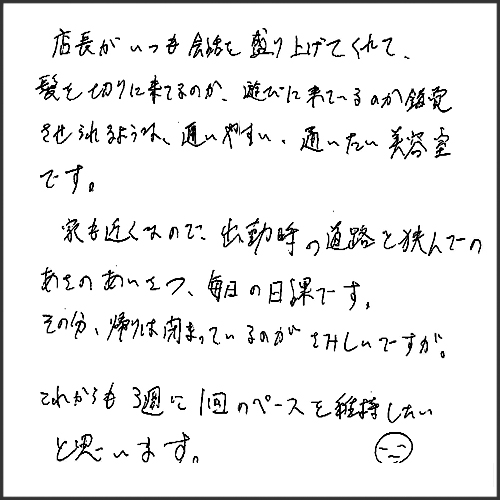 店長がいつも会話を盛り上げてくれて、
髪を切りに来てるのか、遊びに来ているのか錯覚
させられるような、通いやすい、通いたい美容室
です。
家も近くなので、出勤時の道路を挟んでの
あさのあいさつ、毎日の日課です。
その分、帰りは閉まっているのがさみしいですが。
これからも3週に1回のペースを維持したい
と思います。